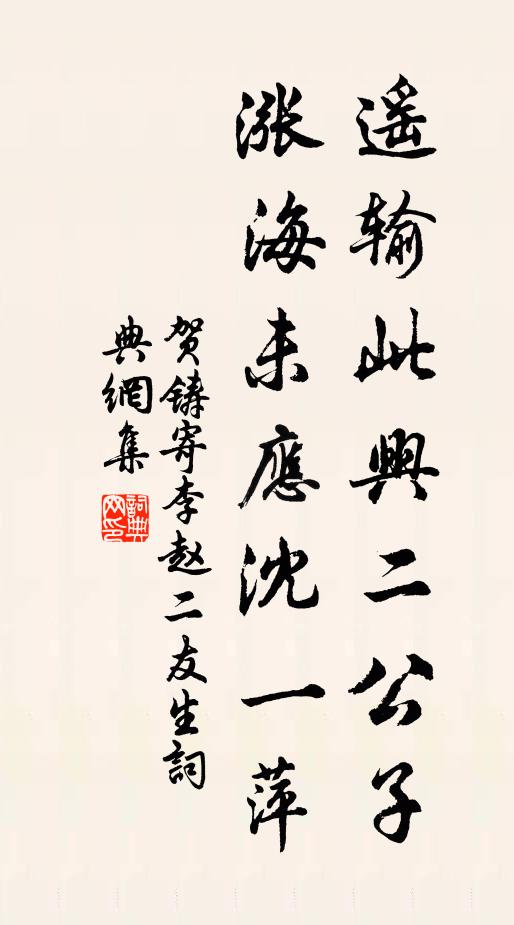 遥输此興二公子
漲海未應沈一萍
贺鑄寄李赵二友生詞
典網集
詞典网印